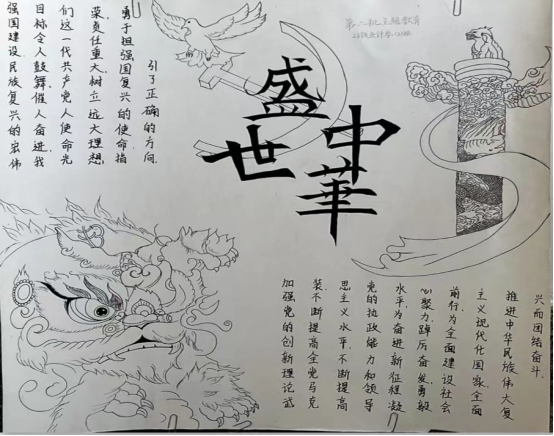 第二批主题教育
盛世
中華
强国建设民族复兴的宏伟
目标令人鼓舞,催人奋进,我
们这一代共产党人使命光
荣,责任重大,树立远大理想,
勇于担强国复兴的使命指
引了正确的方向.
加强党的创新理论武
装,不断提高全党马克
思主义水平,不断提高
党的执政能力和领导
水平,为奋进新征程凝
心聚力,踔厉奋发,勇毅
前行,为全面建设社会
主义现代化国家,全面
推进中华民族伟大复
兴而团结奋斗.